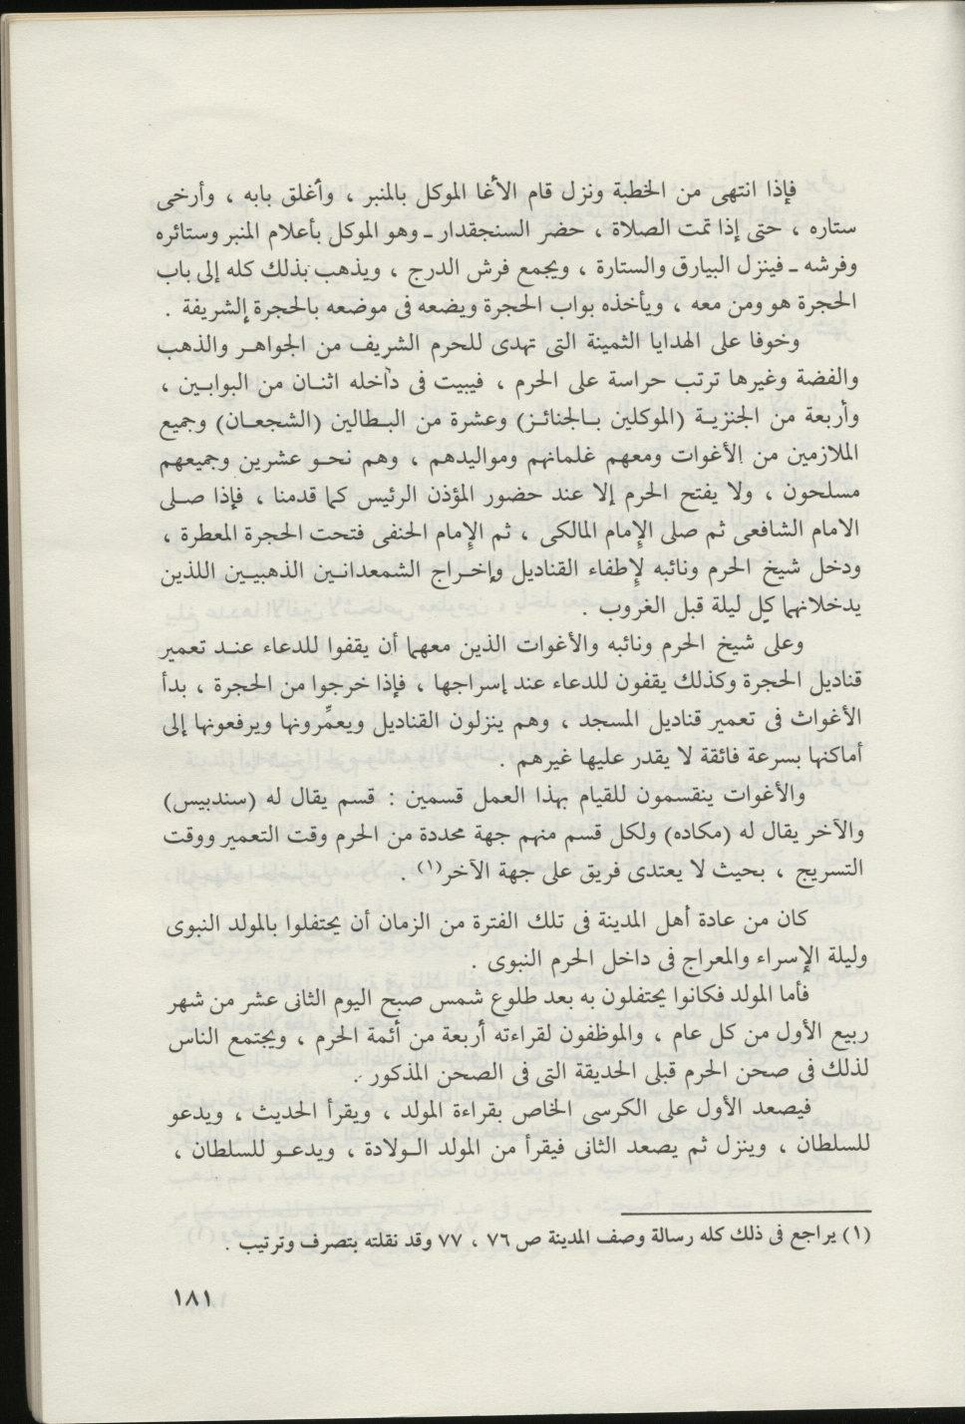 فإذا انتهى من الخطبة ونزل قام الأغا الموكل بالمنبر ، وأغلق بابه ، وأرخى
ستاره ، حتى إذا تمت الصلاة ، حضر السنجقدار ـ وهو الموكل بأعلام المنبر وستائره
وفرشه ـ فينزل البيارق والستارة ، ويجمع فرش الدرج ، ويذهب بذلك كله إلى باب
الحجرة هو ومن معه ، ويأخذه بواب الحجرة ويضعه فى موضعه بالحجرة الشريفة .
وخوفا على الهدايا الثمينة التى تهدى للحرم الشريف من الجواهر والذهب
والفضة وغيرها ترتب حراسة على الحرم ، فيبيت فى داخله اثنان من البوابين ،
وأربعة من الجنزية (الموكلين بالجنائز) وعشرة من البطالين (الشجعان) وجميع
الملازمين من الأغوات ومعهم غلمانهم ومواليدهم ، وهم نحو عشرين وجميعهم
مسلحون ، ولا يفتح الحرم إلا عند حضور المؤذن الرئيس كما قدمنا ، فإذا صلى
الامام الشافعى ثم صلى الإمام المالكى ، ثم الإمام الحنفى فتحت الحجرة المعطرة ،
ودخل شيخ الحرم ونائبه لإطفاء القناديل وإخراج الشمعدانين الذهبيين اللذين
يدخلانهما كل ليلة قبل الغروب .
وعلى شيخ الحرم ونائبه والأغوات الذين معهما أن يقفوا للدعاء عند تعمير
قناديل الحجرة وكذلك يقفون للدعاء عند إسراجها ، فإذا خرجوا من الحجرة ، بدأ
الأغواث فى تعمير قناديل المسجد ، وهم ينزلون القناديل ويعمِّرونها ويرفعونها إلى
أماكنها بسرعة فائقة لا يقدر عليها غيرهم .
والأغوات ينقسمون للقيام بهذا العمل قسمين : قسم يقال له (سندبيس)
والآخر يقال له (مكاده) ولكل قسم منهم جهة محددة من الحرم وقت التعمير ووقت
التسريج ، بحيث لا يعتدى فريق على جهة الآخر(١) .
كان من عادة أهل المدينة فى تلك الفترة من الزمان أن يحتفلوا بالمولد النبوى
وليلة الإسراء والمعراج فى داخل الحرم النبوى .
فأما المولد فكانوا يحتفلون به بعد طلوع شمس صبح اليوم الثانى عشر من شهر
ربيع الأول من كل عام ، والموظفون لقراءته أربعة من أئمة الحرم ، ويجتمع الناس
لذلك فى صحن الحرم قبلى الحديقة التى فى الصحن المذكور .
فيصعد الأول على الكرسى الخاص بقراءة المولد ، ويقرأ الحديث ، ويدعو
للسلطان ، وينزل ثم يصعد الثانى فيقرأ من المولد الولادة ، ويدعو للسلطان ،
(١) يراجع فى ذلك كله رسالة وصف المدينة ص ٧٦ ، ٧٧ وقد نقلته بتصرف وترتيب .
١٨١